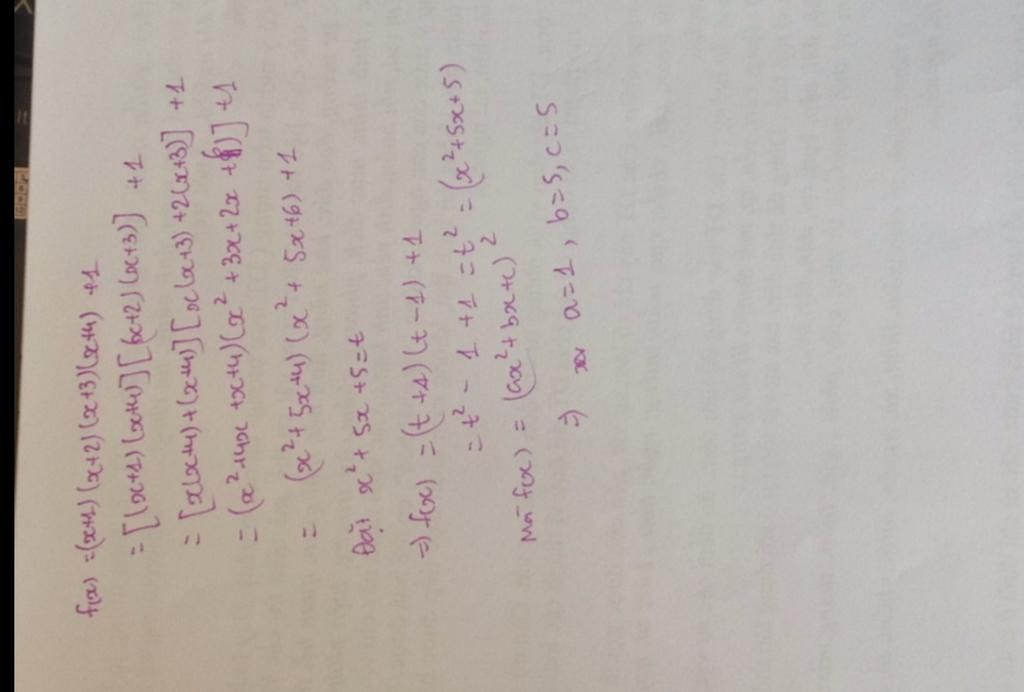 f(x) = (x+1)(x+2)(x+3)(x+4) +1
= [(x+1)(x+4)][(x+2)(x+3)] +1
= [x(x+4)+(x+4)][x(x+3)+2(x+3)] +1
= (x²+4x+x+4)(x²+3x+2x+6)] +1
= (x²+5x+4)(x²+5x+6) +1
Đặt x²+5x+5=t
=) f(x) = (t+1)(t-1)+1
= t² - 1 + 1 = t² = (x²+5x+5)
Mà f(x) = (ax²+bx+c)²
=) a=1, b=5, c=5